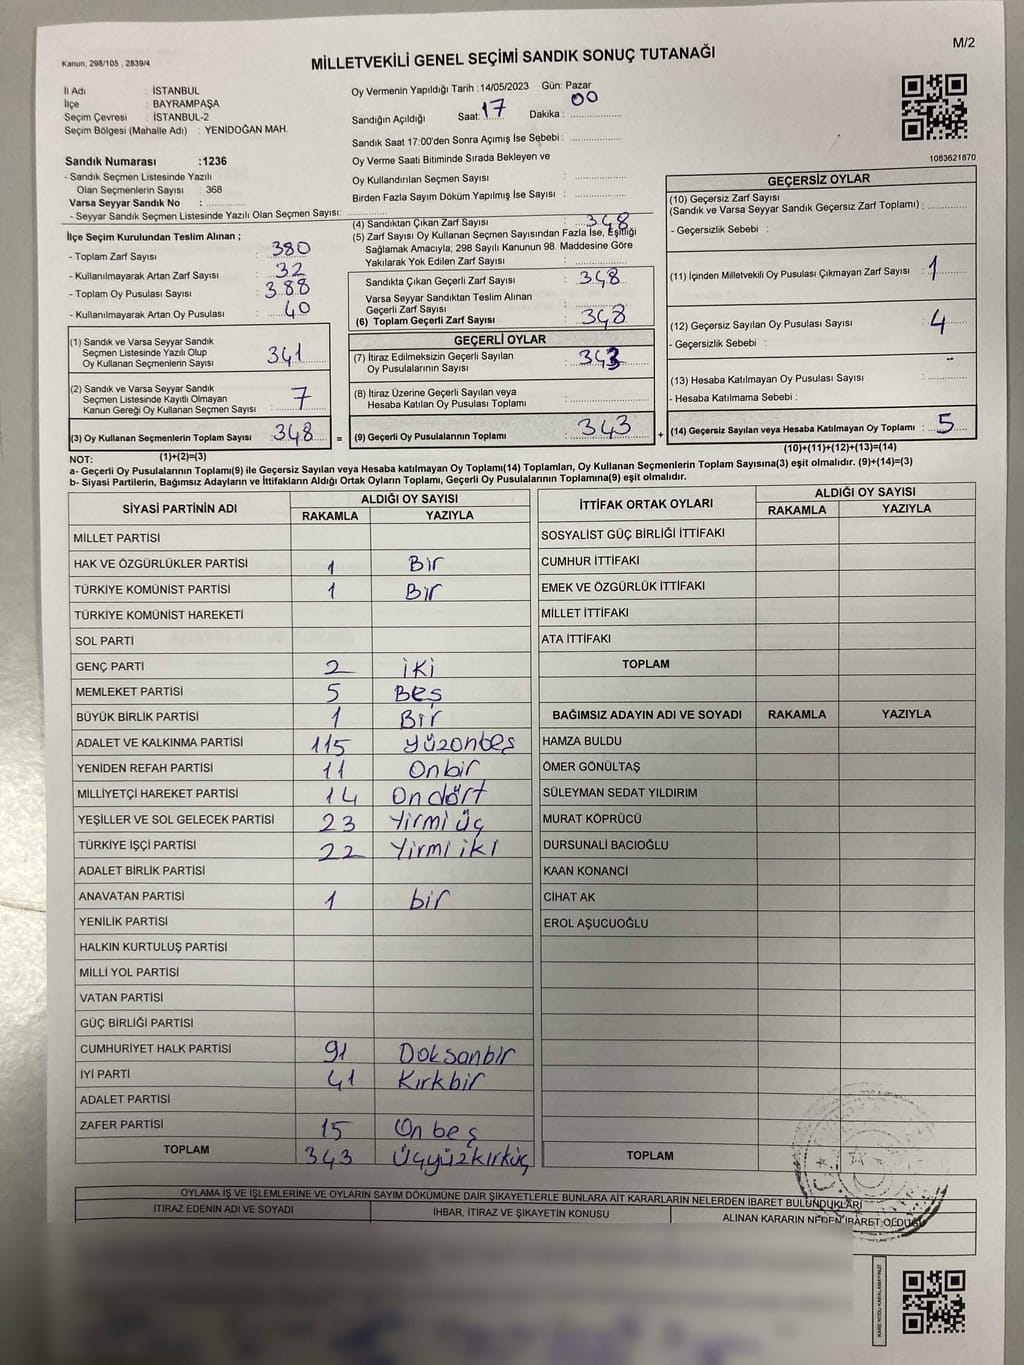 M/2
Kanun; 298/105 , 2839/4
MİLLETVEKİLİ GENEL SEÇİMİ SANDIK SONUÇ TUTANAĞI
İl Adı : İSTANBUL
İlçe : BAYRAMPAŞA
Seçim Çevresi : İSTANBUL-2
Seçim Bölgesi (Mahalle Adı) : YENİDOĞAN MAH.
Sandık Numarası :1236
- Sandık Seçmen Listesinde Yazılı
Olan Seçmenlerin Sayısı : 368
Varsa Seyyar Sandık No :
- Seyyar Sandık Seçmen Listesinde Yazılı Olan Seçmen Sayısı:
Oy Vermenin Yapıldığı Tarih :14/05/2023 Gün: Pazar
Sandığın Açıldığı Saat: 17 Dakika : 00
Sandık Saat 17:00'den Sonra Açımış İse Sebebi :
Oy Verme Saati Bitiminde Sırada Bekleyen ve
Oy Kullandırılan Seçmen Sayısı :
Birden Fazla Sayım Döküm Yapılmış İse Sayısı :
1083621870
İlçe Seçim Kurulundan Teslim Alınan ;
- Toplam Zarf Sayısı : 380
- Kullanılmayarak Artan Zarf Sayısı : 32
- Toplam Oy Pusulası Sayısı : 388
- Kullanılmayarak Artan Oy Pusulası : 40
(1) Sandık ve Varsa Seyyar Sandık
Seçmen Listesinde Yazılı Olup
Oy Kullanan Seçmenlerin Sayısı 341
(2) Sandık ve Varsa Seyyar Sandık
Seçmen Listesinde Kayıtlı Olmayan
Kanun Gereği Oy Kullanan Seçmen Sayısı 7
(3) Oy Kullanan Seçmenlerin Toplam Sayısı 348
(1)+(2)=(3)
(4) Sandıktan Çıkan Zarf Sayısı : 348
(5) Zarf Sayısı Oy Kullanan Seçmen Sayısından Fazla İse, Eşitliği
Sağlamak Amacıyla; 298 Sayılı Kanunun 98. Maddesine Göre
Yakılarak Yok Edilen Zarf Sayısı :
Sandıkta Çıkan Geçerli Zarf Sayısı : 348
Varsa Seyyar Sandıktan Teslim Alınan
Geçerli Zarf Sayısı :
(6) Toplam Geçerli Zarf Sayısı : 348
GEÇERLİ OYLAR
(7) İtiraz Edilmeksizin Geçerli Sayılan
Oy Pusulalarının Sayısı : 343
(8) İtiraz Üzerine Geçerli Sayılan veya
Hesaba Katılan Oy Pusulası Toplamı :
= (9) Geçerli Oy Pusulalarının Toplamı : 343
GEÇERSİZ OYLAR
(10) Geçersiz Zarf Sayısı
(Sandık ve Varsa Seyyar Sandık Geçersiz Zarf Toplamı) :
- Geçersizlik Sebebi :
(11) İçinden Milletvekili Oy Pusulası Çıkmayan Zarf Sayısı : 1
(12) Geçersiz Sayılan Oy Pusulası Sayısı : 4
- Geçersizlik Sebebi :
(13) Hesaba Katılmayan Oy Pusulası Sayısı : -
- Hesaba Katılmama Sebebi :
+ (14) Geçersiz Sayılan veya Hesaba Katılmayan Oy Toplamı : 5
(10)+(11)+(12)+(13)=(14)
NOT:
a- Geçerli Oy Pusulalarının Toplamı(9) ile Geçersiz Sayılan veya Hesaba katılmayan Oy Toplamı(14) Toplamları, Oy Kullanan Seçmenlerin Toplam Sayısına(3) eşit olmalıdır. (9)+(14)=(3)
b- Siyasi Partilerin, Bağımsız Adayların ve İttifakların Aldığı Ortak Oyların Toplamı, Geçerli Oy Pusulalarının Toplamına(9) eşit olmalıdır.
SİYASİ PARTİNİN ADI ALDIĞI OY SAYISI
RAKAMLA YAZIYLA
MİLLET PARTİSİ
HAK VE ÖZGÜRLÜKLER PARTİSİ 1 Bir
TÜRKİYE KOMÜNİST PARTİSİ 1 Bir
TÜRKİYE KOMÜNİST HAREKETİ
SOL PARTİ
GENÇ PARTİ 2 iki
MEMLEKET PARTİSİ 5 Beş
BÜYÜK BİRLİK PARTİSİ 1 Bir
ADALET VE KALKINMA PARTİSİ 115 yüzonbeş
YENİDEN REFAH PARTİSİ 11 Onbir
MİLLİYETÇİ HAREKET PARTİSİ 14 On dört
YEŞİLLER VE SOL GELECEK PARTİSİ 23 Yirmi üç
TÜRKİYE İŞÇİ PARTİSİ 22 Yirmi iki
ADALET BİRLİK PARTİSİ
ANAVATAN PARTİSİ 1 bir
YENİLİK PARTİSİ
HALKIN KURTULUŞ PARTİSİ
MİLLİ YOL PARTİSİ
VATAN PARTİSİ
GÜÇ BİRLİĞİ PARTİSİ
CUMHURİYET HALK PARTİSİ 91 Doksanbir
İYİ PARTİ 41 Kırkbir
ADALET PARTİSİ
ZAFER PARTİSİ 15 On beş
TOPLAM 343 Üçyüzkırküç
İTTİFAK ORTAK OYLARI ALDIĞI OY SAYISI
RAKAMLA YAZIYLA
SOSYALİST GÜÇ BİRLİĞİ İTTİFAKI
CUMHUR İTTİFAKI
EMEK VE ÖZGÜRLÜK İTTİFAKI
MİLLET İTTİFAKI
ATA İTTİFAKI
TOPLAM
BAĞIMSIZ ADAYIN ADI VE SOYADI RAKAMLA YAZIYLA
HAMZA BULDU
ÖMER GÖNÜLTAŞ
SÜLEYMAN SEDAT YILDIRIM
MURAT KÖPRÜCÜ
DURSUNALİ BACIOĞLU
KAAN KONANCİ
CİHAT AK
EROL AŞUCUOĞLU
TOPLAM
OYLAMA İŞ VE İŞLEMLERİNE VE OYLARIN SAYIM DÖKÜMÜNE DAİR ŞİKAYETLERLE BUNLARA AİT KARARLARIN NELERDEN İBARET BULUNDUKLARI
İTİRAZ EDENİN ADI VE SOYADI İHBAR, İTİRAZ VE ŞİKAYETİN KONUSU ALINAN KARARIN NEDEN İBARET OLDUĞU